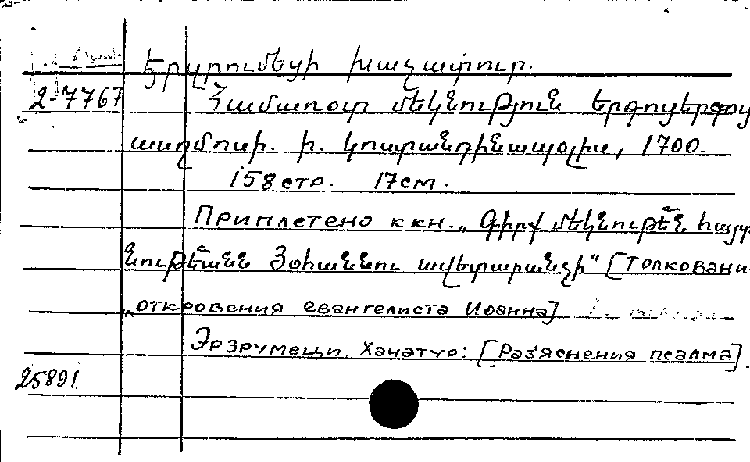 Երզրումեցի Խաչատուր.
2-7767 Համառօտ մեկնութիւն երգոցերգոյ
սաղմոսի. ի. Կոստանդինապօլիս, 1700.
158 стр. 17 см.
Приплетено к кн. „Գիրք մեկնութեան հայտ
նութեանն Յօհաննու աւետարանչի“ [Толковани
„откровения евангелиста Иоанна]
Эрзрумеци, Хачатур: [Раз'яснения псалма].
25891